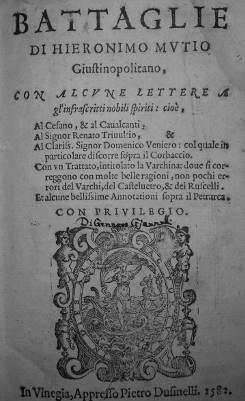 BATTAGLIE
DI HIERONIMO MVTIO
Giustinopolitano,
CON ALCVNE LETTERE A
gl'infrascritti nobili spiriti: cioè,
Al Cesano, & al Caualcanti,
Al Signor Renato Triuultio, &
Al Clariss. Signor Domenico Veniero: col quale in
particolare discorre sopra il Corbaccio.
Con vn Trattato, intitolato la Varchina: doue si cor-
reggono con molte belle ragioni, non pochi er-
rori del Varchi, del Casteluetro, & del Ruscelli.
Et alcune bellissime Annotationi sopra il Petrarca.
CON PRIVILEGIO.
Di Gennaro Giannelli
In Vinegia, Appresso Pietro Dusinelli. 1582.